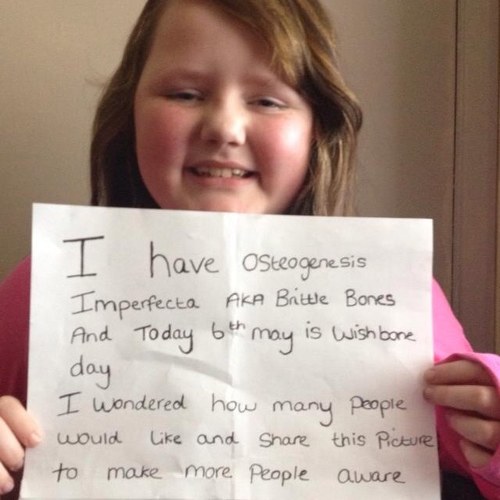 I have Osteogenesis
Imperfecta AKA Brittle Bones
And Today 6th may is Wishbone
day
I Wondered how many People
would Like and Share this Picture
to make more People aware